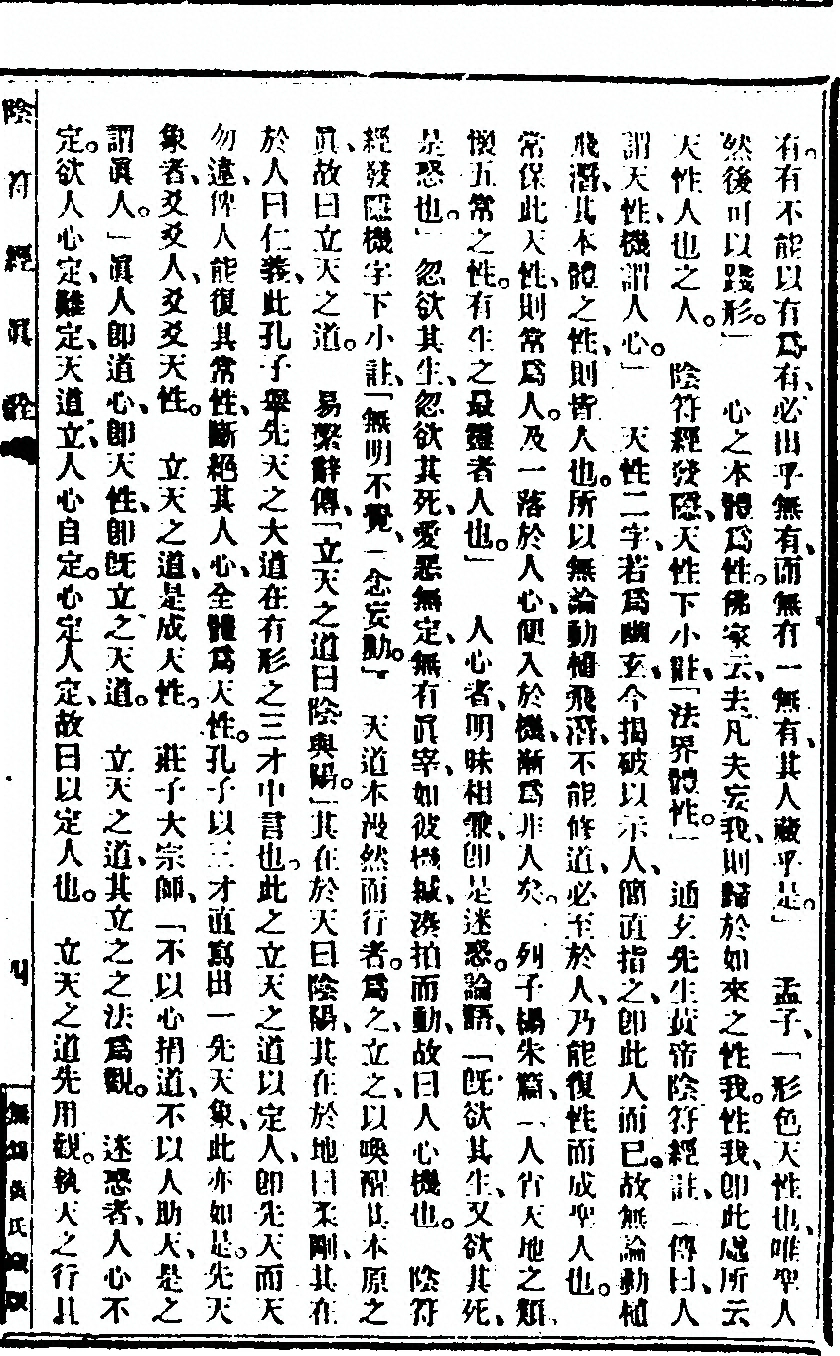 有。有不能以有爲有、必出乎無有、而無有一無有、其人藏乎是。」　孟子、「形色天性也、唯聖人
然後可以踐形。」　心之本體爲性。佛家云、去凡夫妄我、則歸於如來之性我。性我、卽此處所云
天性人也之人。　陰符經發隱、天性下小註、「法界體性。」　通玄先生黃帝陰符經註、「傳曰、人
謂天性、機謂人心。」　天性二字、若爲幽玄、今揭破以示人、簡直指之、卽此人而已。故無論動植
飛潛、其本體之性、則皆人也。所以無論動植飛潛、不能修道、必至於人、乃能復性而成聖人也。
常保此天性、則常爲人。及一落於人心、便入於機、漸爲非人矣。　列子楊朱篇、「人肖天地之類、
懷五常之性。有生之最靈者人也。」　人心者、明昧相兼、卽是迷惑。論語、「旣欲其生、又欲其死、
是惑也。」　忽欲其生、忽欲其死、愛惡無定、無有眞宰、如彼機緘、湊拍而動、故曰人心機也。　陰符
經發隱機字下小註、「無明不覺、一念妄動。」　天道本漫然而行者。爲之立之、以喚醒其本原之
眞、故曰立天之道。　易繫辭傳、「立天之道曰陰與陽。」其在於天曰陰陽、其在於地曰柔剛、其在
於人曰仁義、此孔子舉先天之大道在有形之三才中言也。此之立天之道以定人、卽先天而天
勿違、俾人能復其常性、斷絕其人心、全體爲天性。孔子以三才直寫出一先天象、此亦如是。先天
象者、爻爻人、爻爻天性。　立天之道、是成天性。　莊子大宗師、「不以心捐道、不以人助天、是之
謂眞人。」眞人卽道心、卽天性、卽旣立之天道。　立天之道、其立之之法爲觀。　迷惑者、人心不
定。欲人心定、難定、天道立、人心自定。心定人定、故曰以定人也。　立天之道先用觀。執天之行具
陰符經眞詮
四
黃氏